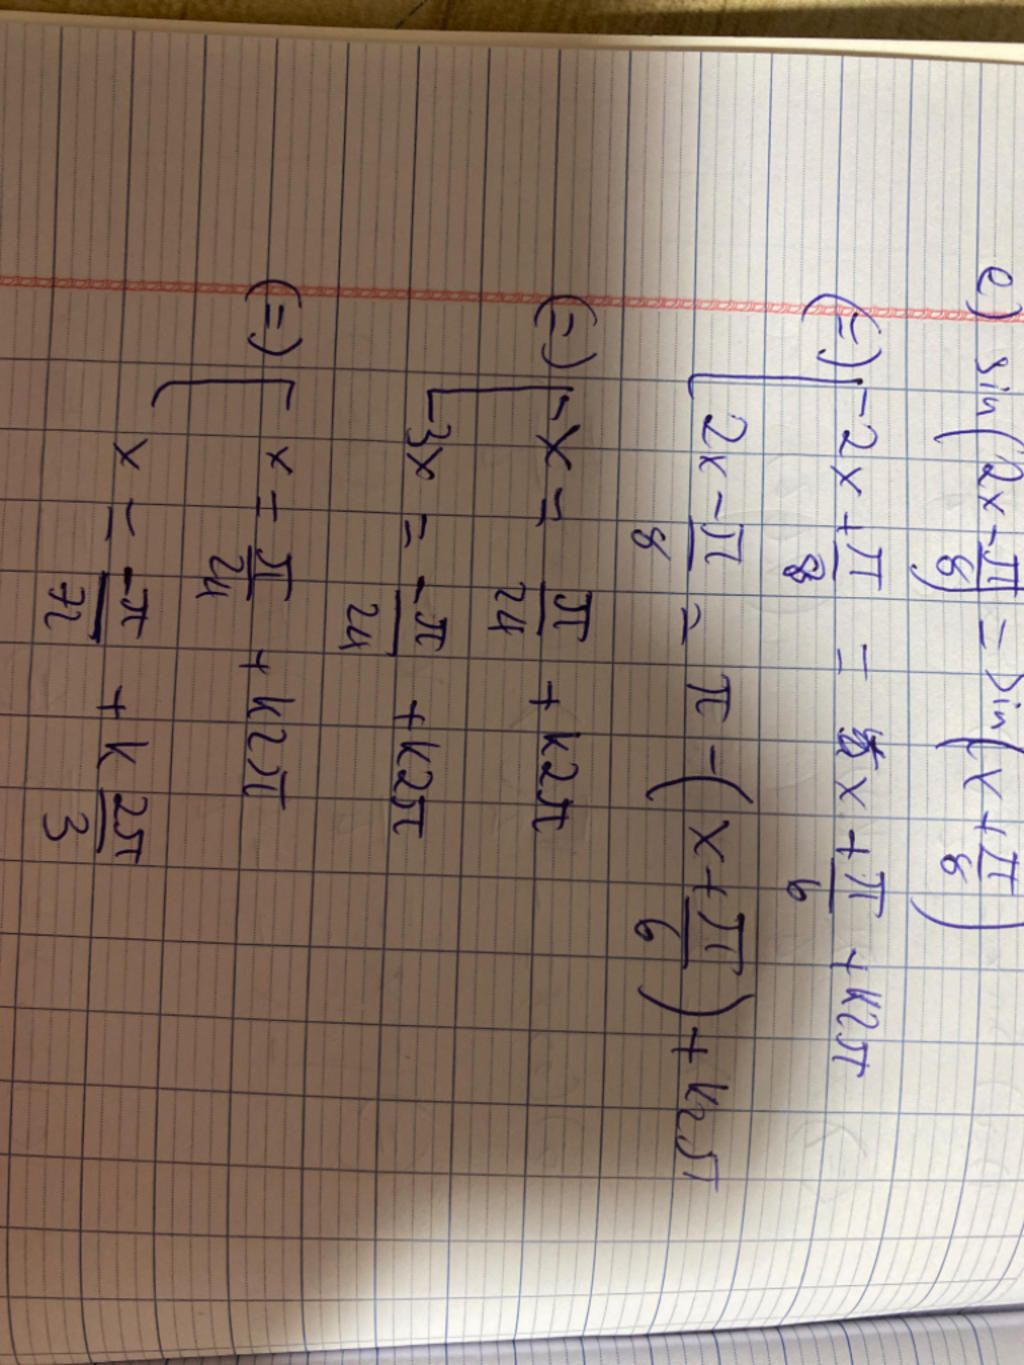 e) sin(2x - π/8) = sin(x + π/6)
(=) [ -2x + π/8 = x + π/6 + k2π
2x - π/8 = π - (x + π/6) + k2π
(=) [ -x = π/24 + k2π
-3x = -π/24 + k2π
(=) [ x = π/24 + k2π
x = -π/72 + k2π/3